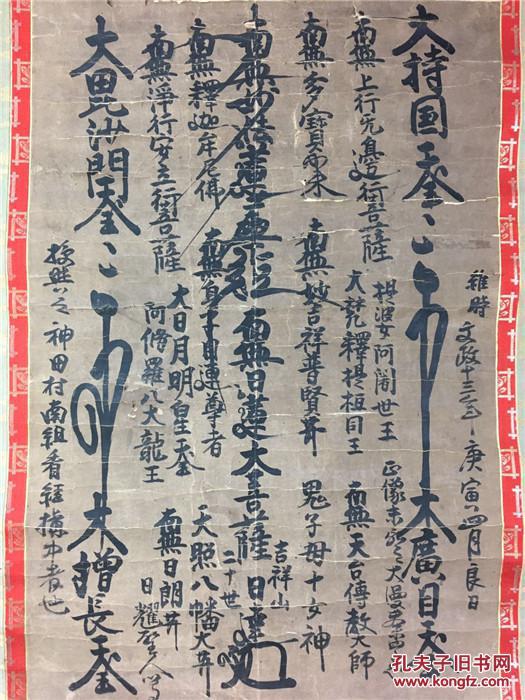 維時 文政十三年 庚寅 四月良日
大持国天王
大廣目天王
南無上行无邊行菩薩
提婆 阿闍世王
大梵釋提桓因王
正像未弘之大漫荼羅也
南無天台傳教大師
南無多寶如来
南無妙吉祥普賢𦬇
鬼子母十女神
南無妙法蓮華経
南無日蓮大菩薩
吉祥山
二十世
日達
南無釋迦牟尼佛
南無身子目連尊者
天照八幡大𦬇
南無淨行安立行菩薩
大日月明星天
阿脩羅八大龍王
南無日朗𦬇
日耀聖人等
大毘沙門天王
大增長天王
授與之 神田村南組看經講中者也
孔夫子旧书网
www.kongfz.com